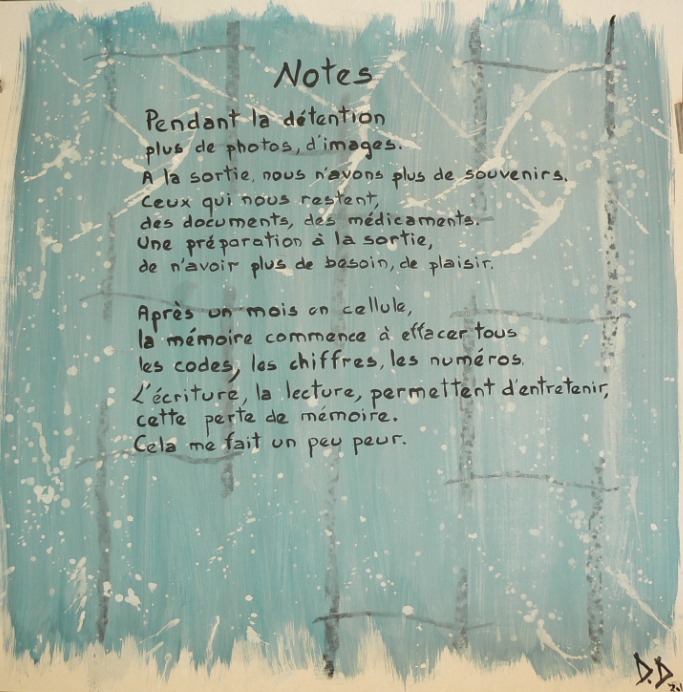 Notes
Pendant la détention
plus de photos, d'images.
A la sortie, nous n'avons plus de souvenirs.
Ceux qui nous restent,
des documents, des médicaments.
Une préparation à la sortie,
de n'avoir plus de besoin, de plaisir.
Après un mois en cellule,
la mémoire commence à effacer tous
les codes, les chiffres, les numéros.
L'écriture, la lecture, permettent d'entretenir,
cette perte de mémoire.
Cela me fait un peu peur.
D.D